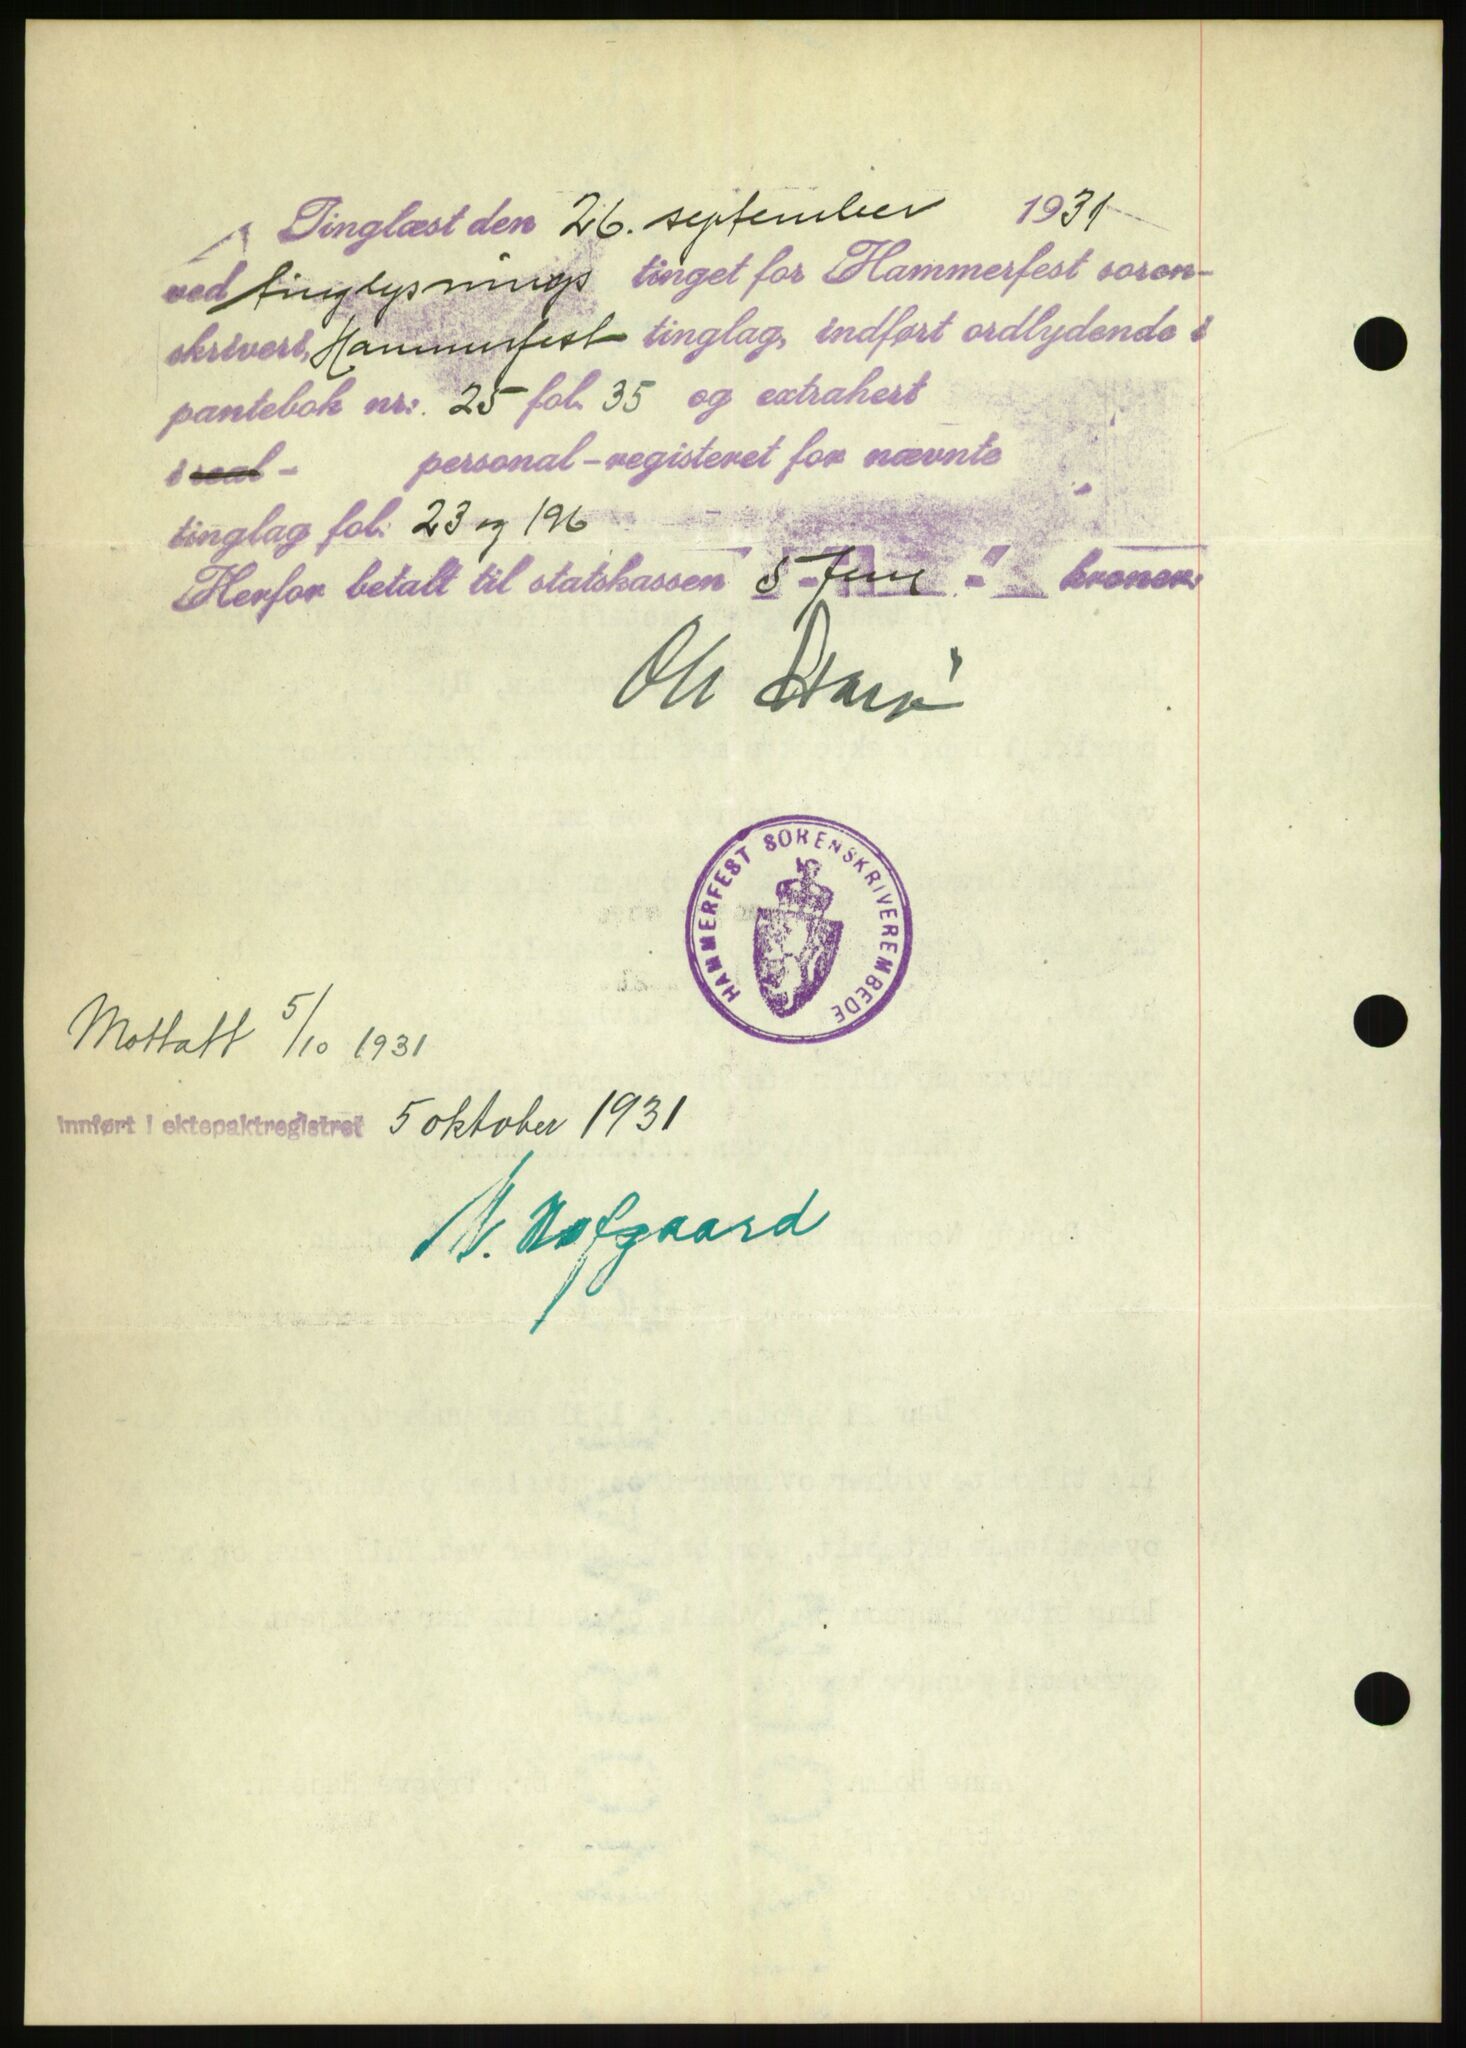 Tinglæst den 26. september 1931
ved tinglysnings tinget for Hammerfest soren-
skriveri, Hammerfest tinglag, indført ordlydende i
pantebok nr: 25 fol. 35 og extrahert
i real - personal-registeret for nævnte
tinglag fol: 23 og 196
Herfor betalt til statskassen 5 - fem - kroner.
HAMMERFEST SORENSKRIVEREMBEDE
Mottatt 5/10 1931
Innført i ektepaktregistret 5 oktober 1931